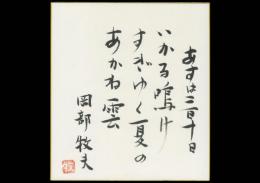 あすは二百十日
いかる鳴け
すぎゆく夏の
あかね雲
岡部牧夫